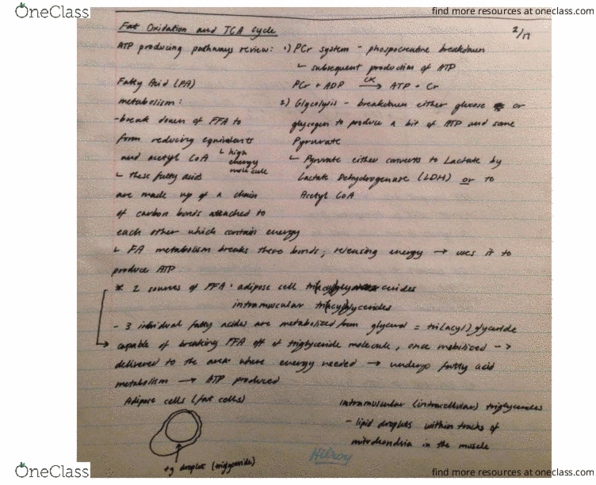 OneClass
find more resources at oneclass.com
Fat Oxidation and TCA cycle
2/17
ATP producing pathways review:
1) PCr system - phosphocreatine breakdown
↳ subsequent production of ATP
PCr + ADP →CK ATP + Cr
2) Glycolysis - breakdown either glucose or
glycogen to produce a bit of ATP and some
Pyruvate
↳ Pyruvate either converts to Lactate by
Lactate Dehydrogenase (LDH) or to
Acetyl CoA
Fatty Acid (FA)
metabolism:
- break down of FFA to
form reducing equivalents
and acetyl CoA
↳ high
energy
molecule
↳ these fatty acids
are made up of a chain
of carbon bonds attached to
each other which contain energy
↳ FA metabolism breaks these bonds, releasing energy → uses it to
produce ATP
* 2 sources of FFA · adipose cell tri(acyl)glycerides
intramuscular tri(acyl)glycerides
- 3 individual fatty acids are metabolized from glycerol = tri(acyl)glyceride
capable of breaking FFA off of triglyceride molecule, once mobilized ->
delivered to the area where energy needed → undergo fatty acid
metabolism → ATP produced
Adipose cells (fat cells)
intramuscular (intracellular) triglycerides
- lipid droplets within tracks of
mitochondria in the muscle
droplet
OneClass
find more resources at oneclass.com